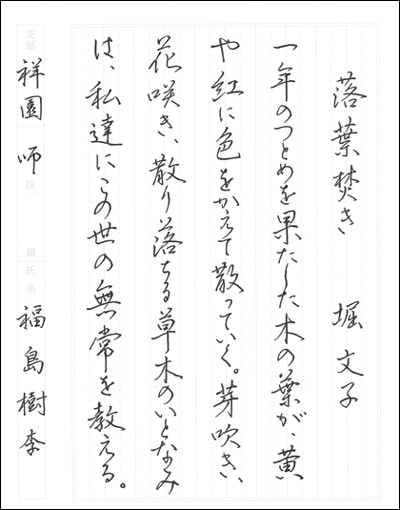 落葉焚き　堀文子
一年のつとめを果たした木の葉が、黄
や紅に色をかえて散っていく。芽吹き、
花咲き、散り落ちる草木のいとなみ
は、私達にこの世の無常を教える。
支部 祥園 師 段 級 氏名 福島樹李